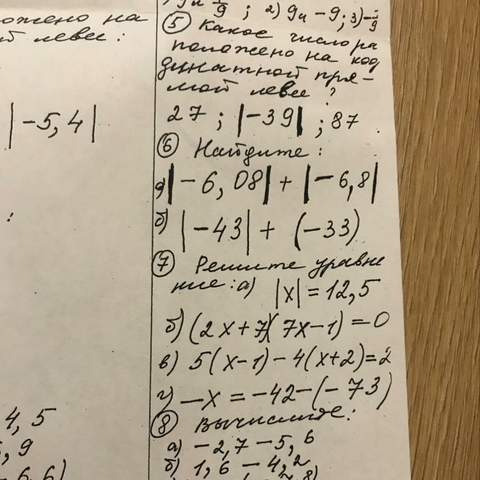 ложено на
левее:
|-5,4|
4,5
,9
9 и 1/9; 2) 9 и -9; 3) -1/9
⑤ Какое число ра
положено на коор
динатной пря-
мой левее?
27; |-39|; 87
⑥ Найдите:
а) |-6,08| + |-6,8|
б) |-43| + (-33)
⑦ Решите уравне
ние: а) |x| = 12,5
б) (2x+7)(7x-1) = 0
в) 5(x-1) - 4(x+2) = 2
г) -x = -42 - (-73)
⑧ Вычислите:
а) -2,7 - 5,6
б) 1,6 - 4,2